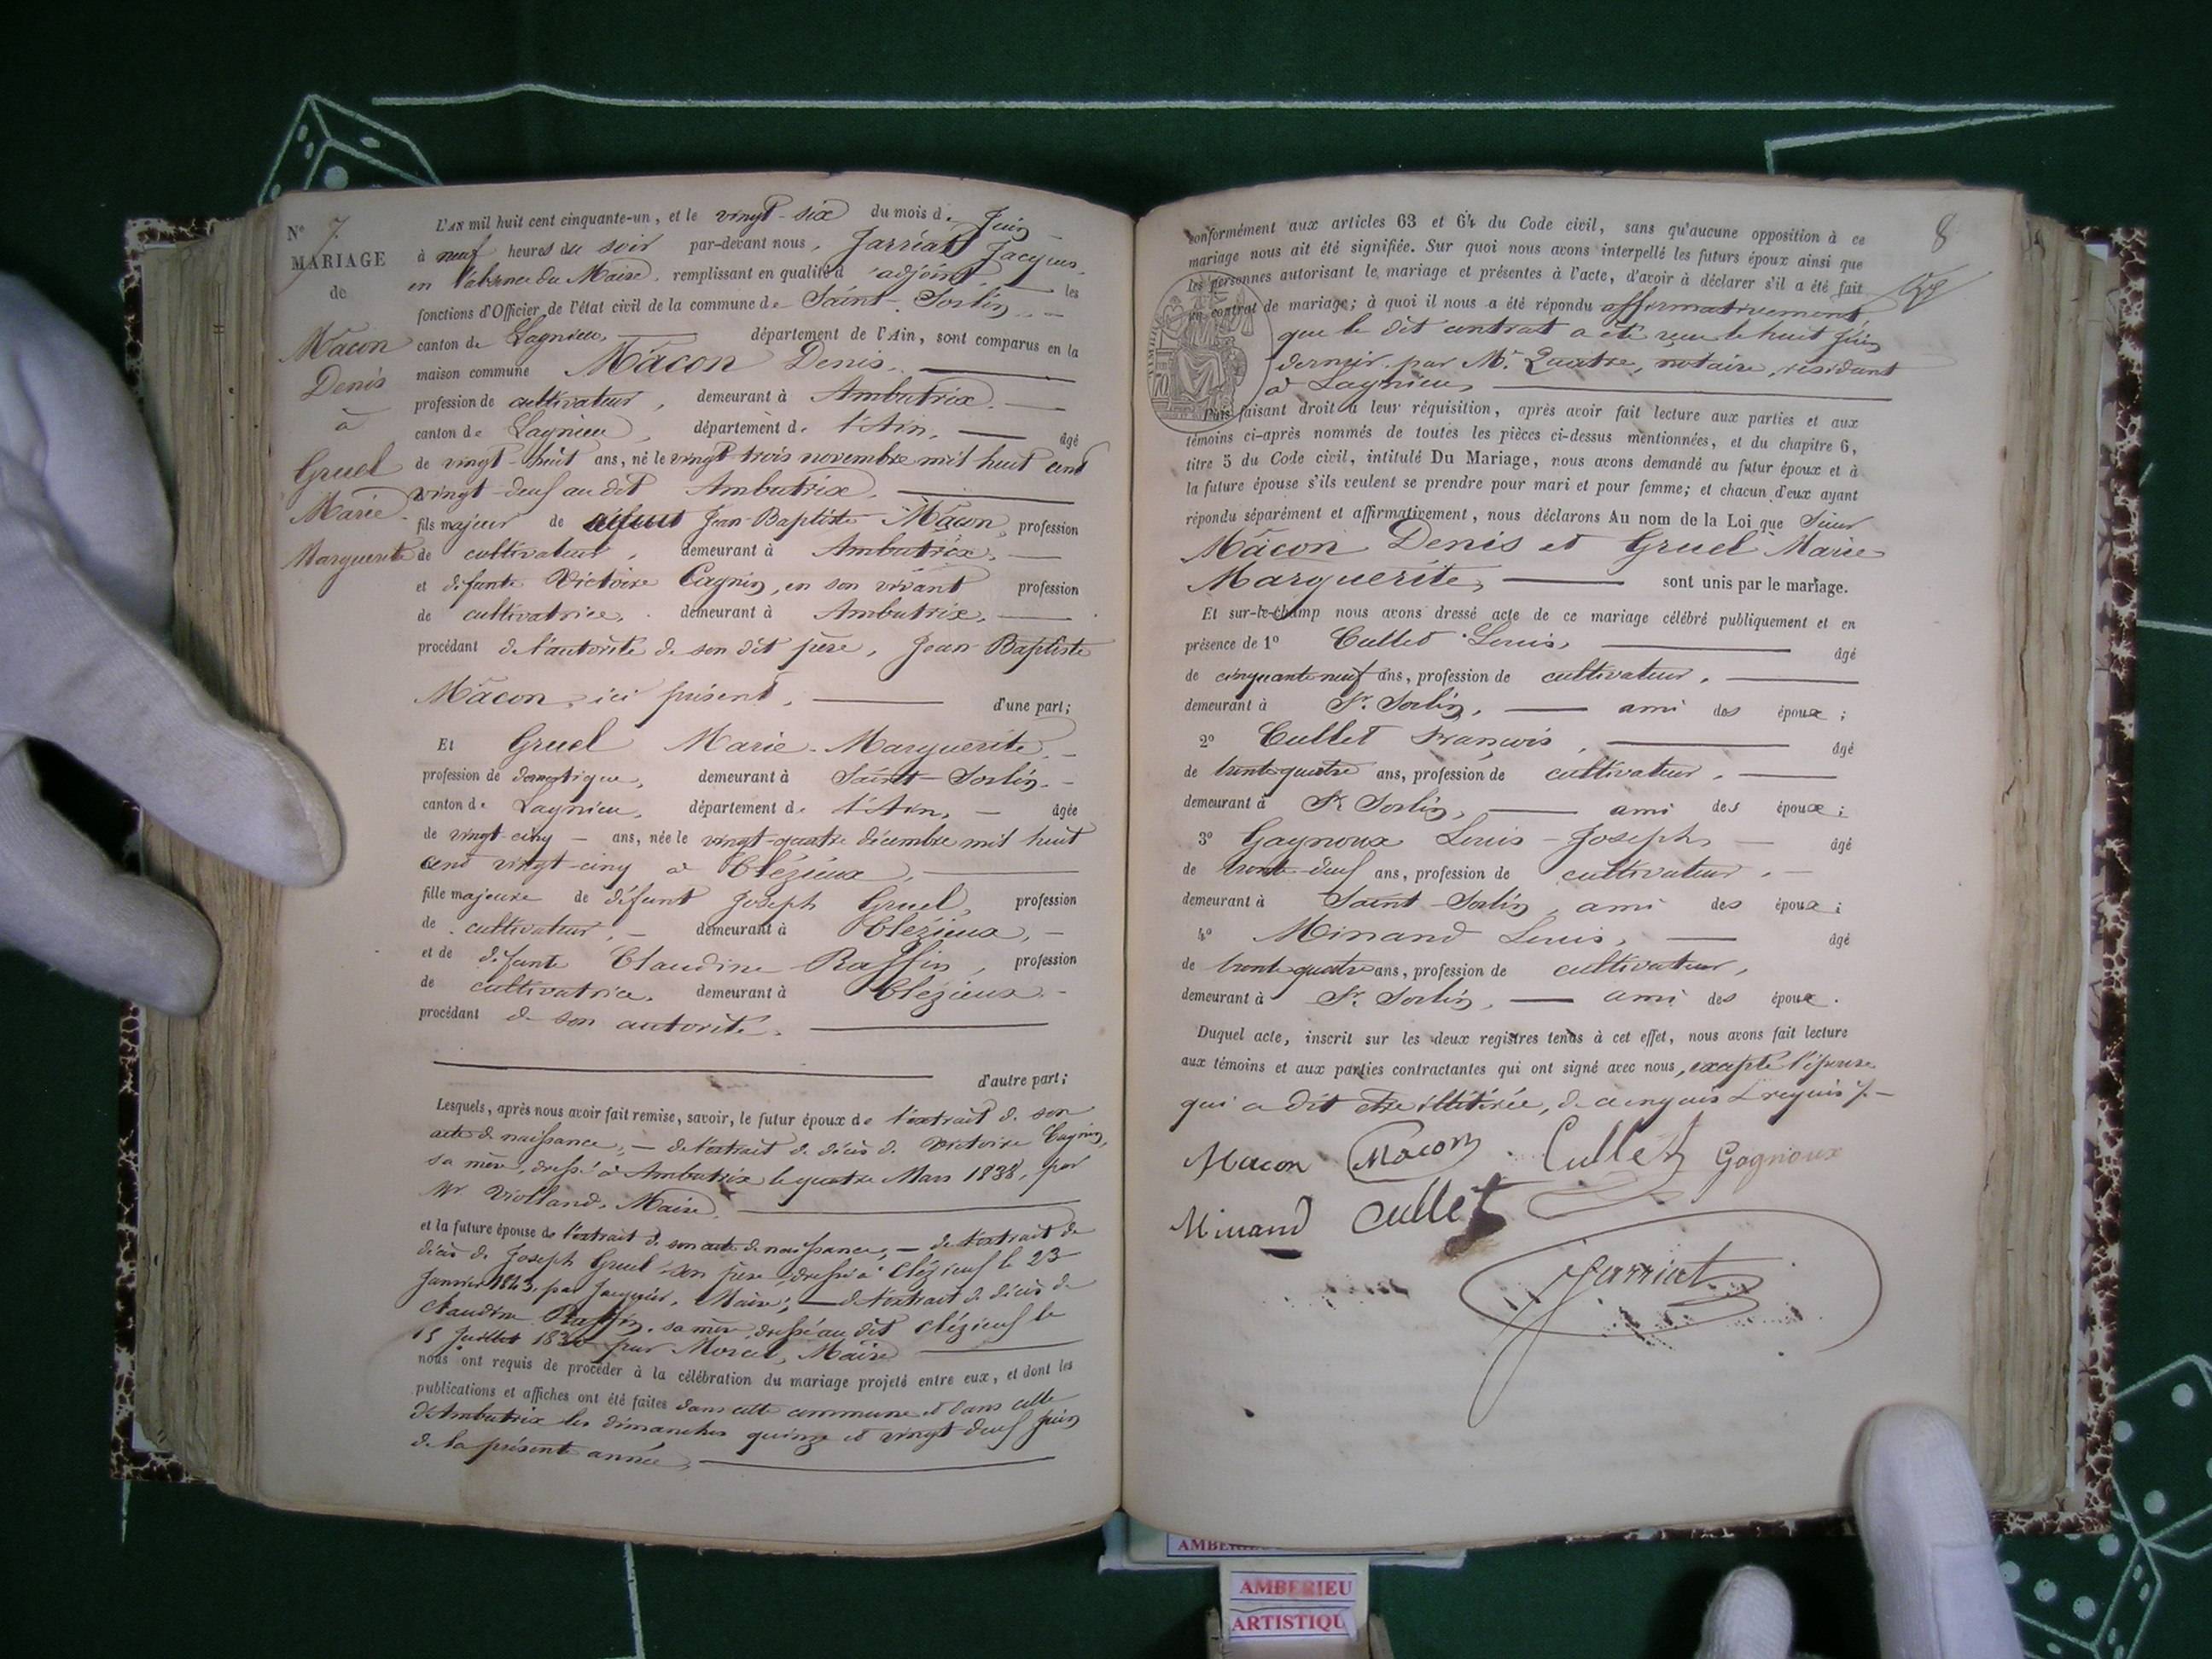 N° 7.
MARIAGE
de
Mâcon
Denis
à
Gruel
Marie
Marguerite
L'AN mil huit cent cinquante-un, et le vingt-six du mois de Juin
à neuf heures du soir par-devant nous, Jarriat Jacques,
en l'absence du Maire, remplissant en qualité d'adjoint les
fonctions d'Officier de l'état civil de la commune de Saint-Sorlin
canton de Lagnieu, département de l'Ain, sont comparus en la
maison commune Mâcon Denis,
profession de cultivateur, demeurant à Ambutrix,
canton de Lagnieu, département de l'Ain, âgé
de vingt-huit ans, né le vingt trois novembre mil huit cent
vingt-deux au dit Ambutrix,
fils majeur de Jean-Baptiste Mâcon, profession
de cultivateur, demeurant à Ambutrix,
et défunte Victoire Cagnin, en son vivant profession
de cultivatrice, demeurant à Ambutrix,
procédant de l'autorité de son dit père, Jean-Baptiste
Mâcon, ici présent, d'une part;
Et Gruel Marie-Marguerite,
profession de domestique, demeurant à Saint-Sorlin,
canton de Lagnieu, département de l'Ain, âgée
de vingt-cinq ans, née le vingt-quatre décembre mil huit
cent vingt-cinq à Clézieux,
fille majeure de défunt Joseph Gruel, profession
de cultivateur, demeurant à Clézieux,
et de défunte Claudine Raffin, profession
de cultivatrice, demeurant à Clézieux
procédant de son autorité,
d'autre part;
Lesquels, après nous avoir fait remise, savoir, le futur époux de l'extrait de son
acte de naissance, – de l'extrait de décès de Victoire Cagnin,
sa mère, dressé à Ambutrix le quatre Mars 1838, par
Mr Violland, Maire,
et la future épouse de l'extrait de son acte de naissance, – de l'extrait de
décès de Joseph Gruel son père, dressé à Clézieux le 23
Janvier 1843, par Jacquier, Maire; – de l'extrait de décès de
Claudine Raffin, sa mère, dressé au dit Clézieux le
15 Juillet par Morel, Maire
nous ont requis de procéder à la célébration du mariage projeté entre eux, et dont les
publications et affiches ont été faites dans cette commune et dans celle
d'Ambutrix les dimanches quinze et vingt-deux Juin
de la présente année,
8
conformément aux articles 63 et 64 du Code civil, sans qu'aucune opposition à ce
mariage nous ait été signifiée. Sur quoi nous avons interpellé les futurs époux ainsi que
les personnes autorisant le mariage et présentes à l'acte, d'avoir à déclarer s'il a été fait
un contrat de mariage; à quoi il nous a été répondu affirmativement,
que le dit contrat a été reçu le huit Juin
dernier par Me Quatre, notaire, résidant
à Lagnieu,
Puis faisant droit à leur réquisition, après avoir fait lecture aux parties et aux
témoins ci-après nommés de toutes les pièces ci-dessus mentionnées, et du chapitre 6,
titre 5 du Code civil, intitulé Du Mariage, nous avons demandé au futur époux et à
la future épouse s'ils veulent se prendre pour mari et pour femme; et chacun d'eux ayant
répondu séparément et affirmativement, nous déclarons Au nom de la Loi que Sieur
Mâcon Denis et Gruel Marie
Marguerite, sont unis par le mariage.
Et sur-le-champ nous avons dressé acte de ce mariage célébré publiquement et en
présence de 1° Cullet Louis, âgé
de cinquante neuf ans, profession de cultivateur,
demeurant à St. Sorlin, ami des époux;
2° Cullet François, âgé
de trente quatre ans, profession de cultivateur,
demeurant à St Sorlin, ami des époux;
3° Gagnoux Louis-Joseph âgé
de trente-deux ans, profession de cultivateur,
demeurant à Saint-Sorlin, ami des époux;
4° Minand Louis, âgé
de trente quatre ans, profession de cultivateur,
demeurant à St. Sorlin, ami des époux.
Duquel acte, inscrit sur les deux registres tenus à cet effet, nous avons fait lecture
aux témoins et aux parties contractantes qui ont signé avec nous, excepté l'épouse
qui a dit être illitérée, de ce enquis & requis
Macon Macon Cullet Gagnoux
Minand Cullet
Jarriat
AMBERIEU
ARTISTIQU